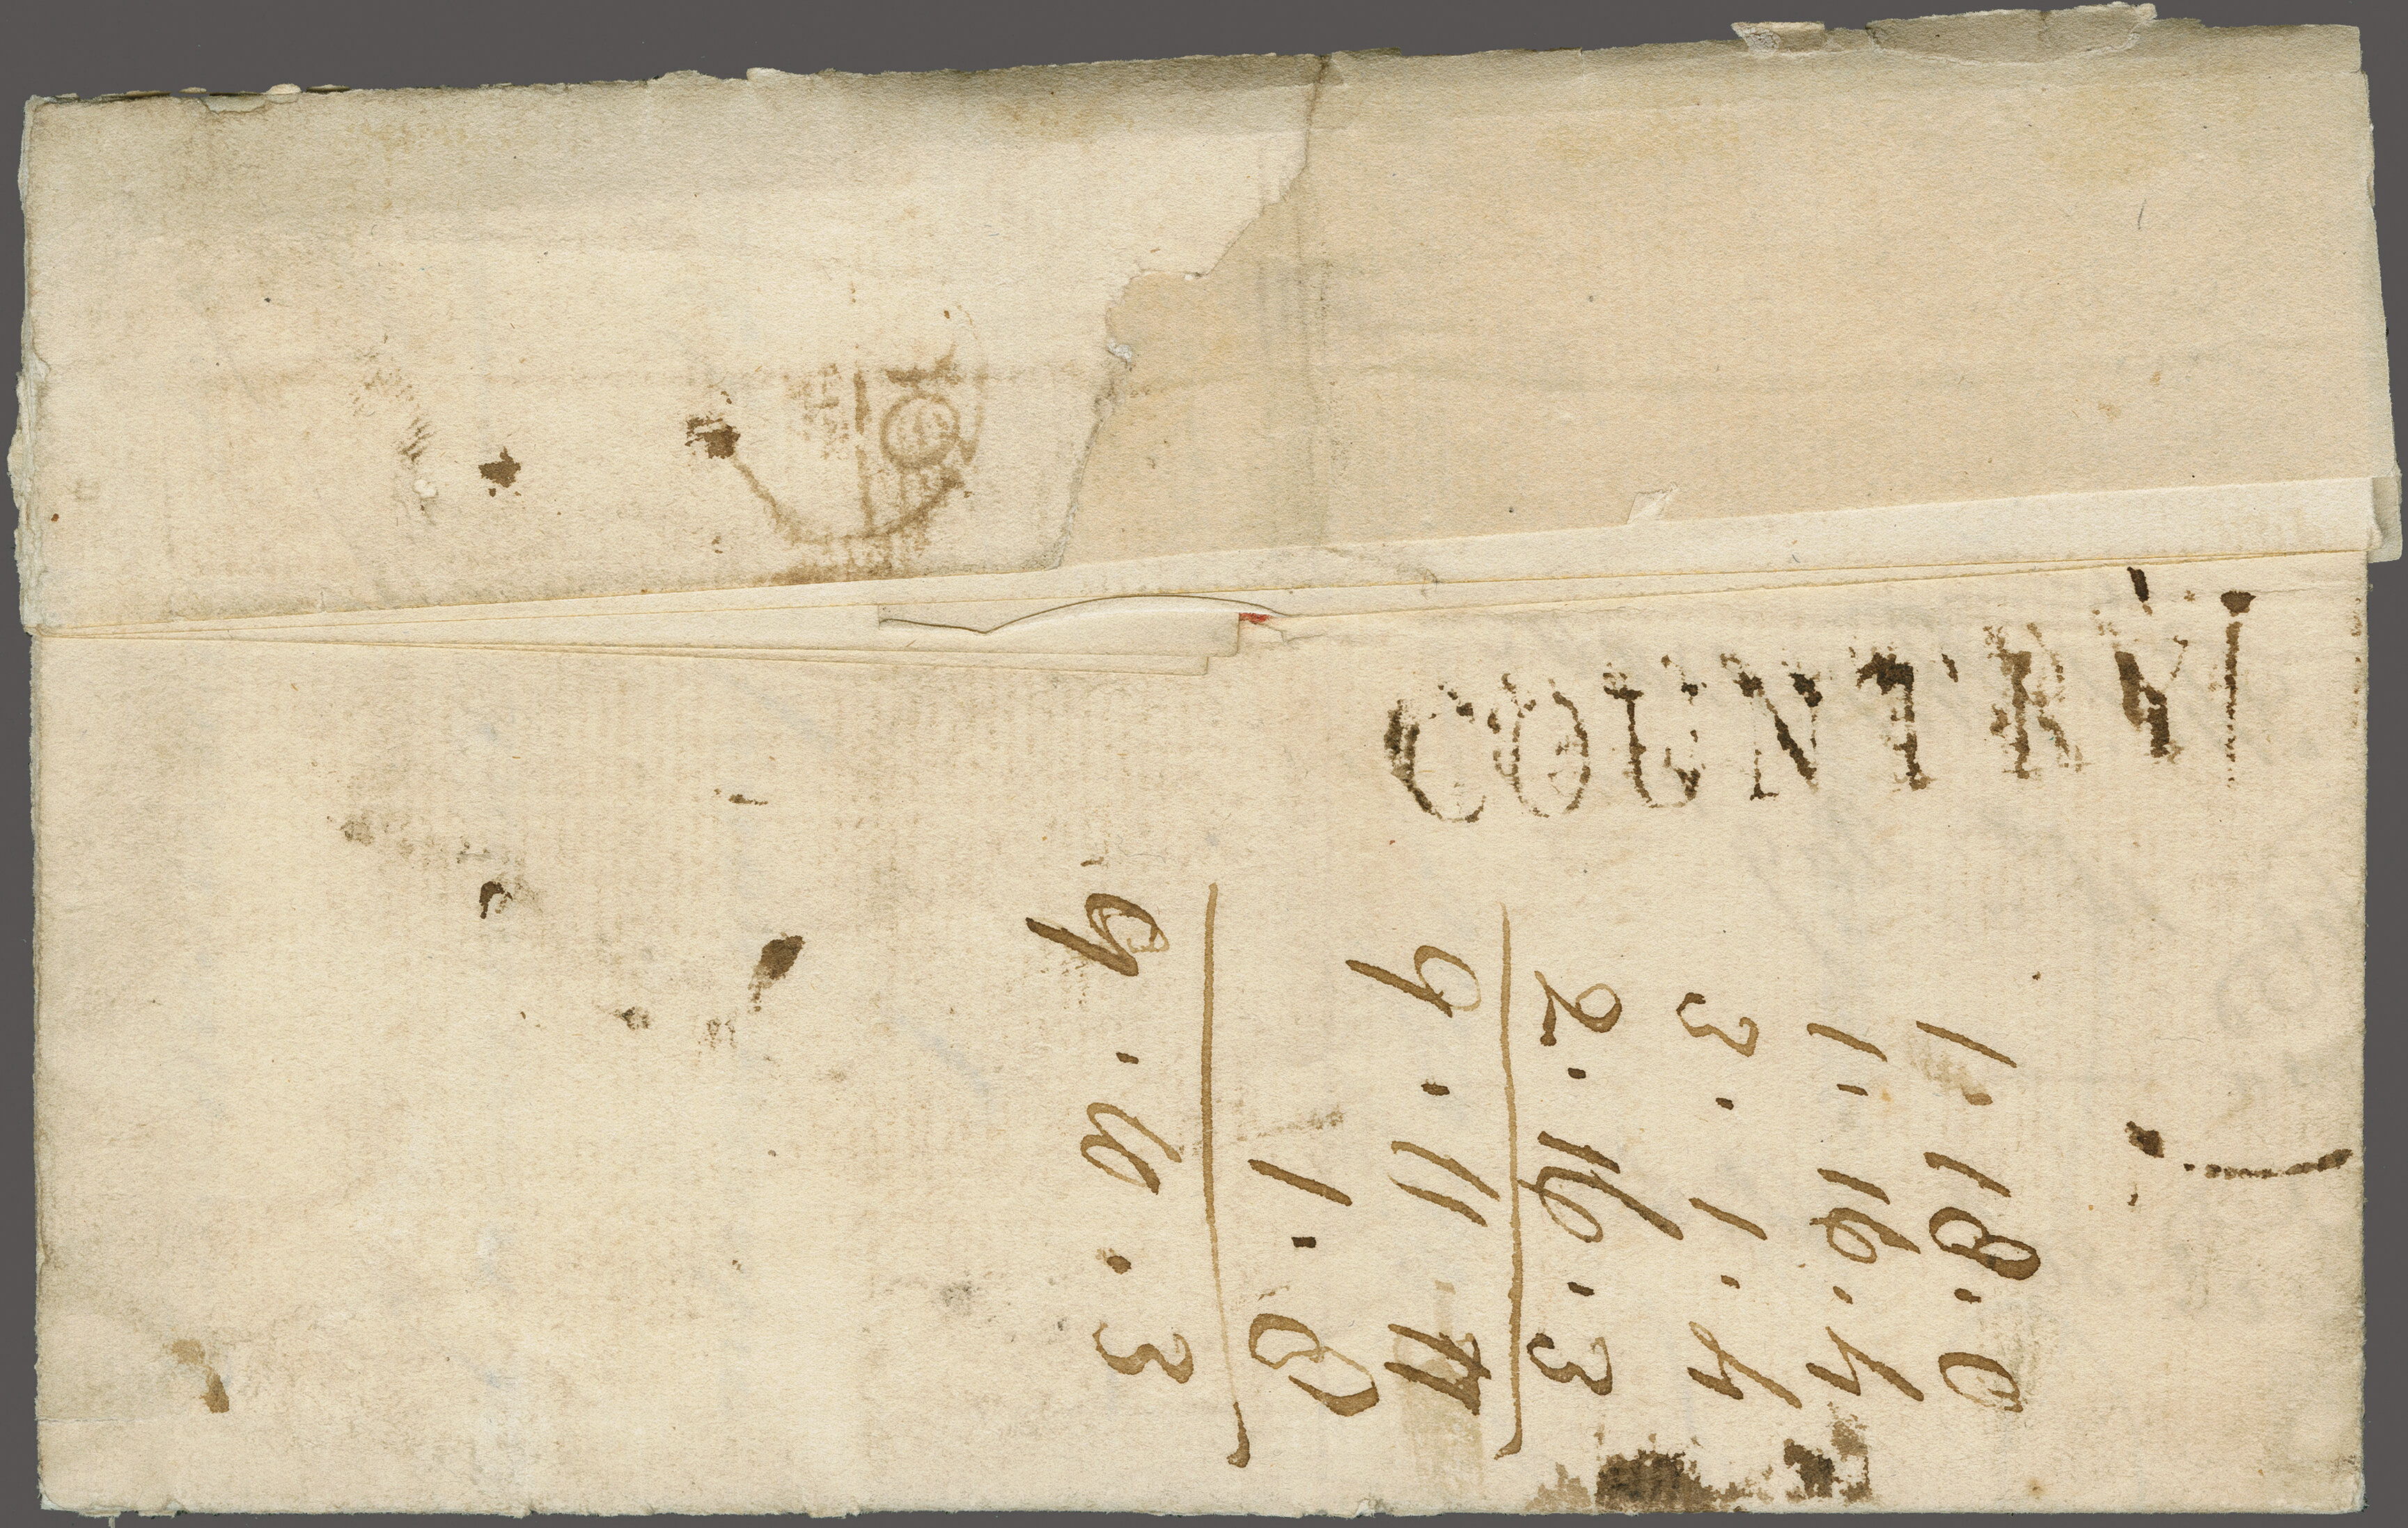 COUNTRY
1. 18. 0
1. 16. 4
3. 1. 4
2. 16. 3
9. 11. 11
1. 8
9. 10. 3